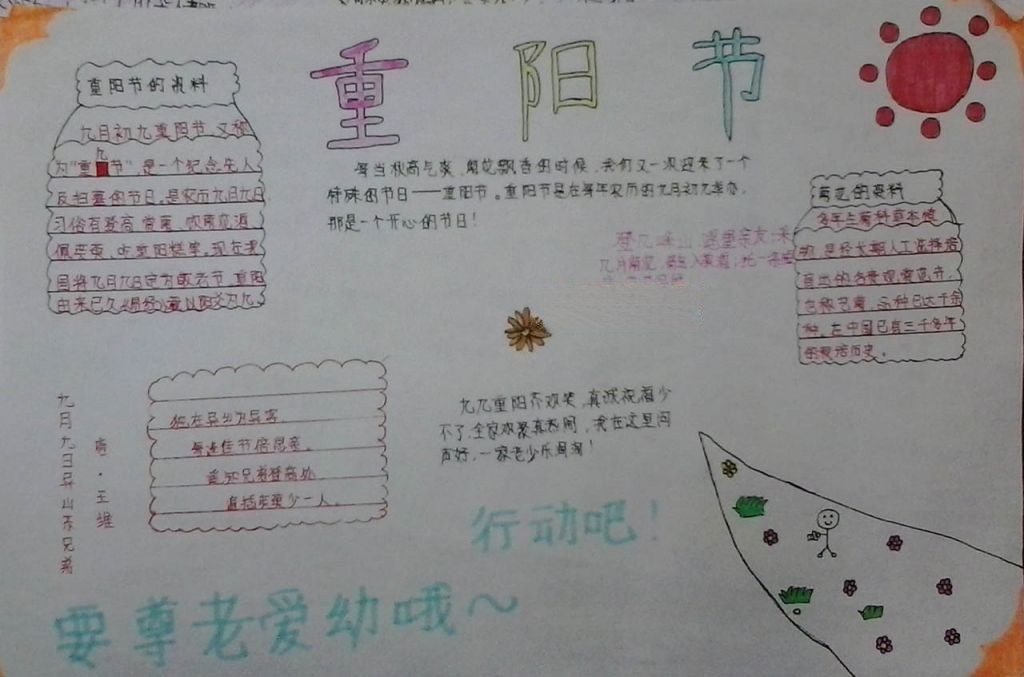 重阳节
重阳节的资料
九月初九重阳节,又称
为"重九节",是一个纪念先人
的节日,是农历九月九日
习俗有登高 赏菊
佩茱萸,吃重阳糕等。现在我
国将九月九日定为敬老节 重阳
由来已久《易经》
每当秋高气爽,菊花飘香的时候,我们又一次迎来了一个
特殊的节日——重阳节。重阳节是在每年农历的九月初九举办,
那是一个开心的节日!
菊花的资料
多年生菊科草本植
物,是经长期人工选择培
育出的名贵观赏花卉,
也称艺菊,品种已达千余
种,在中国已有三千多年
的栽培历史。
九月九日忆山东兄弟
唐·王维
独在异乡为异客,
每逢佳节倍思亲。
遥知兄弟登高处,
遍插茱萸少一人。
九九重阳齐欢笑,真诚祝福少
不了,全家欢聚真热闹,我在这里问
声好,一家老少乐淘淘!
行动吧!
要尊老爱幼哦~